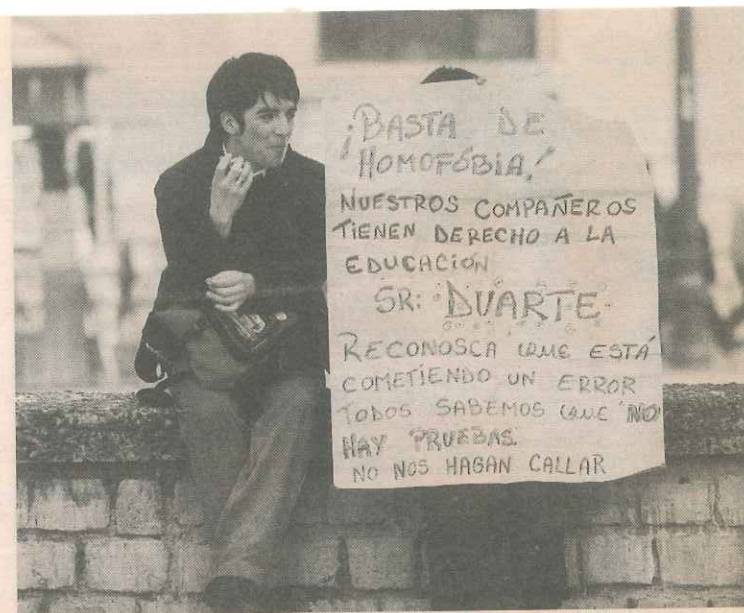 ¡BASTA DE
HOMOFÓBIA!
NUESTROS COMPAÑEROS
TIENEN DERECHO A LA
EDUCACIÓN
SR: DUARTE
RECONOSCA QUE ESTÁ
COMETIENDO UN ERROR
TODOS SABEMOS QUE NO
HAY PRUEBAS.
NO NOS HAGAN CALLAR